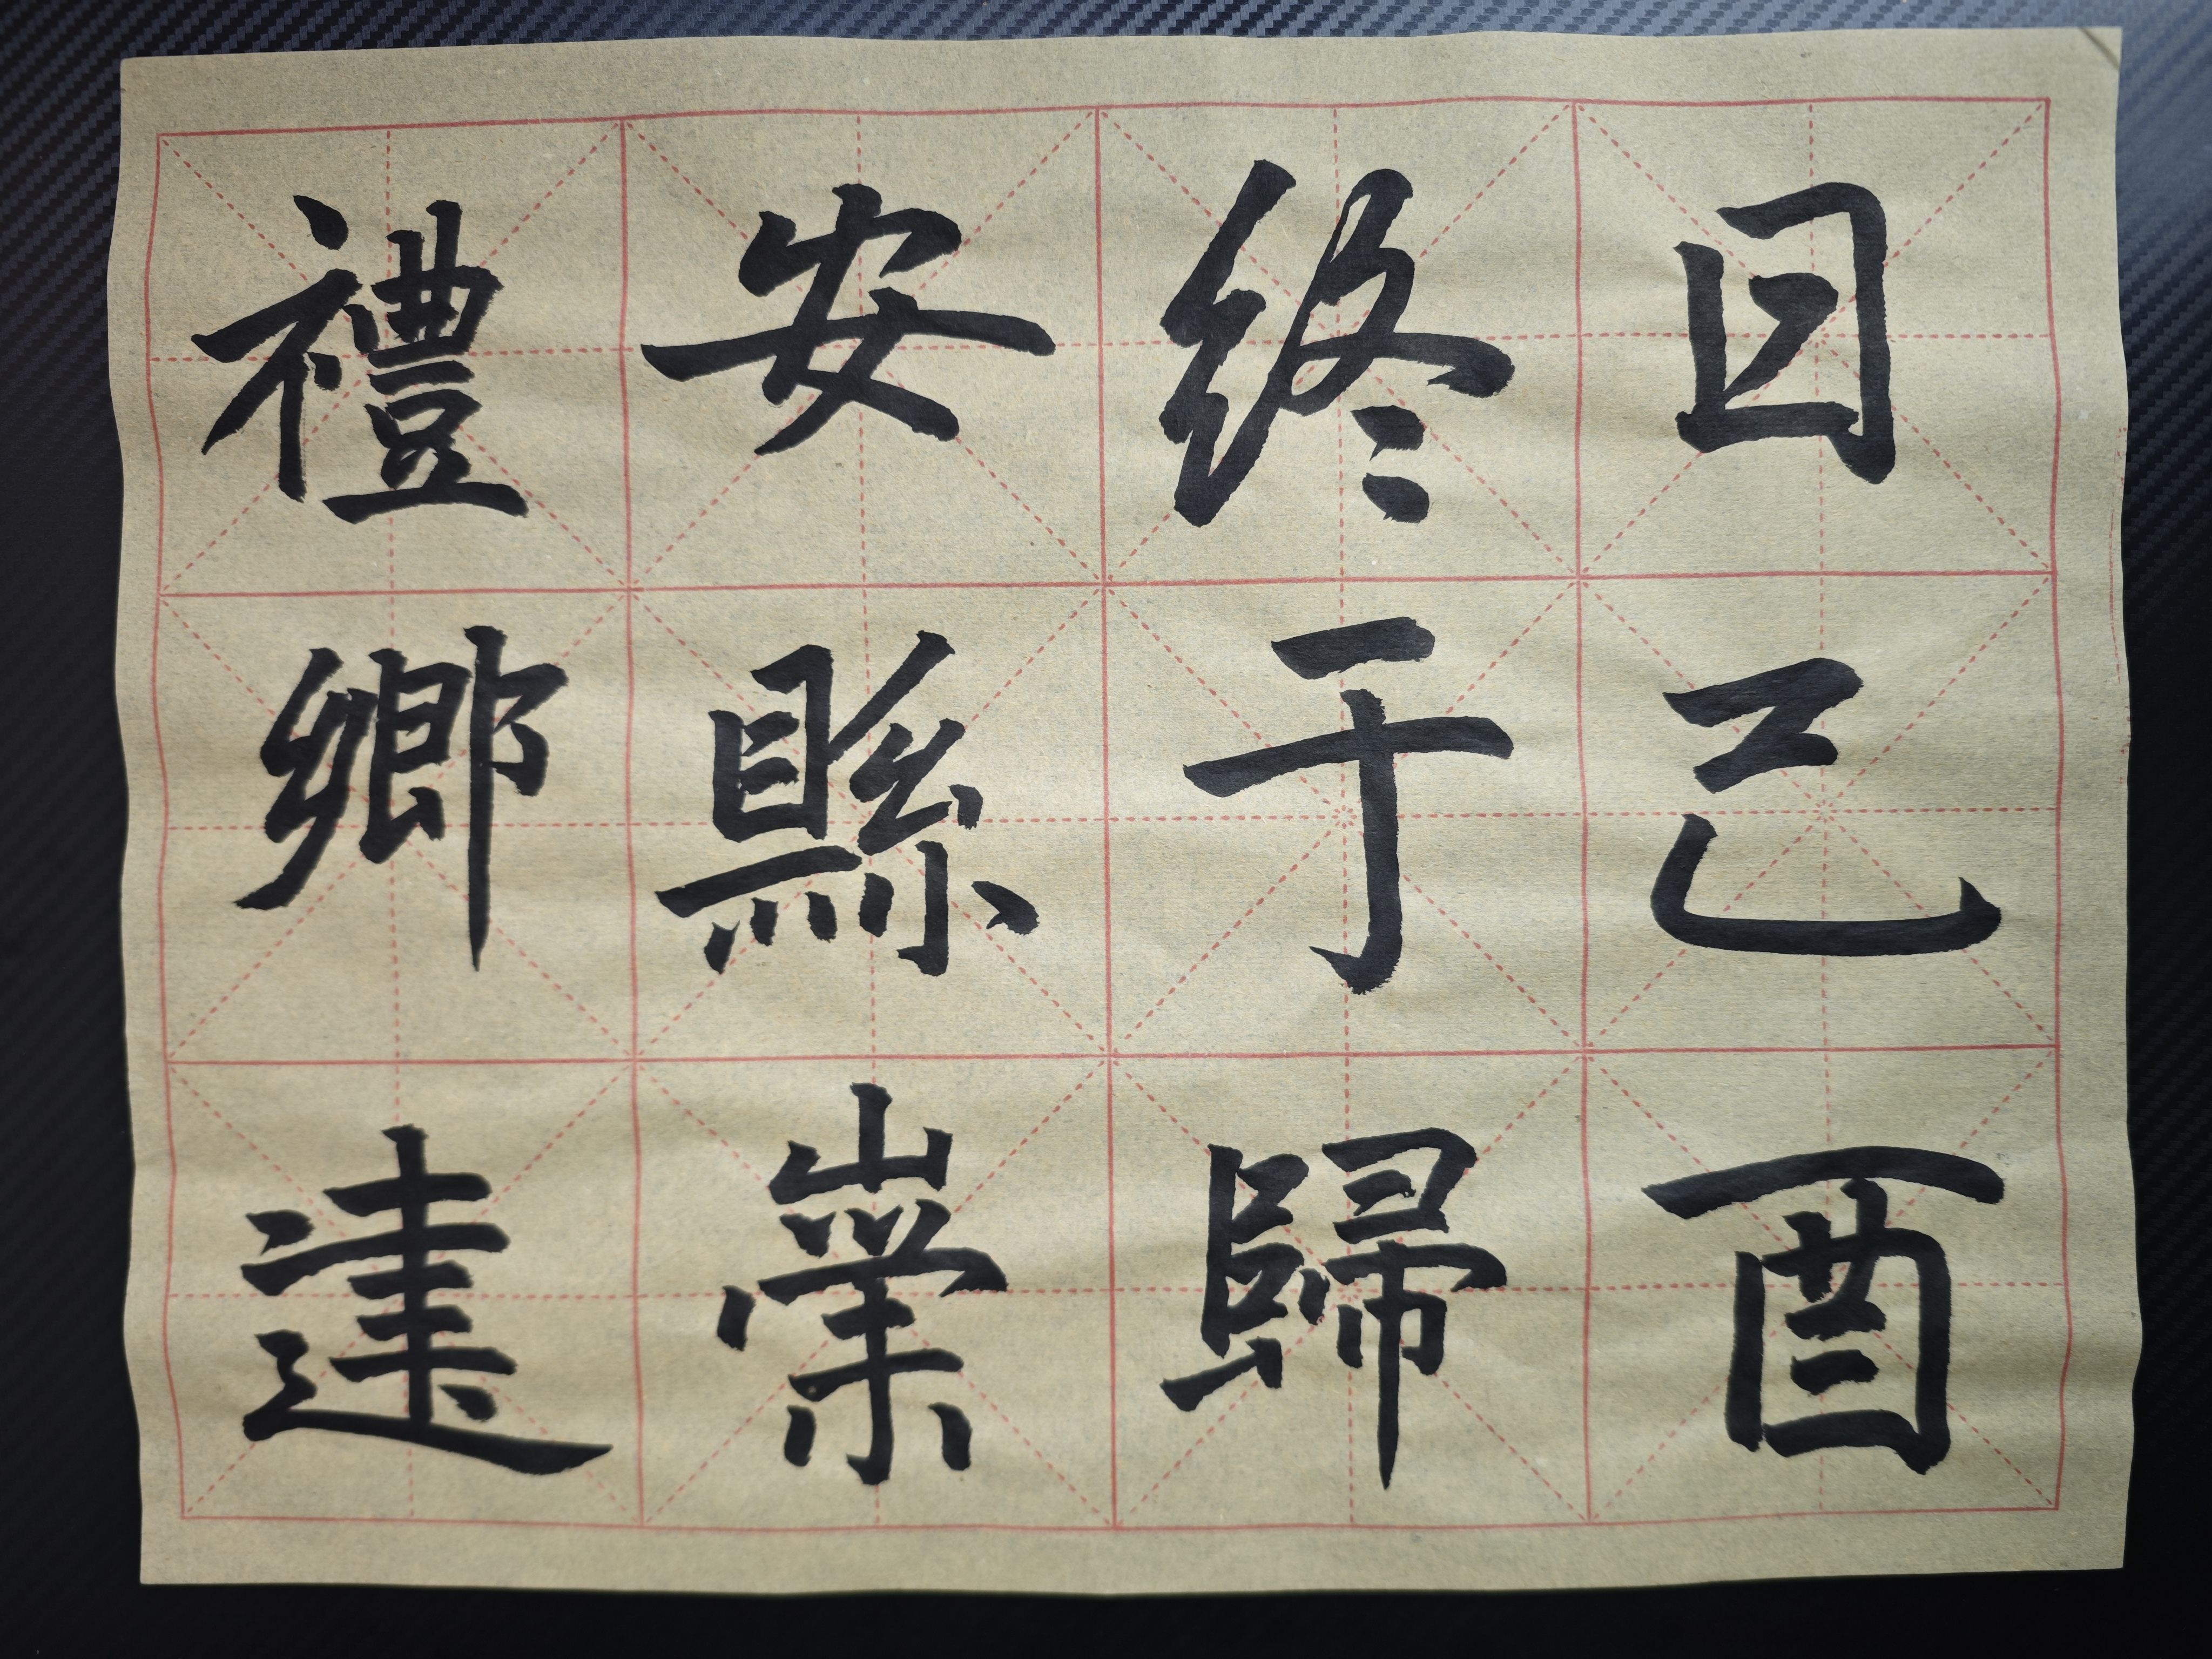 日己酉
終于歸
安縣崇
禮鄉達